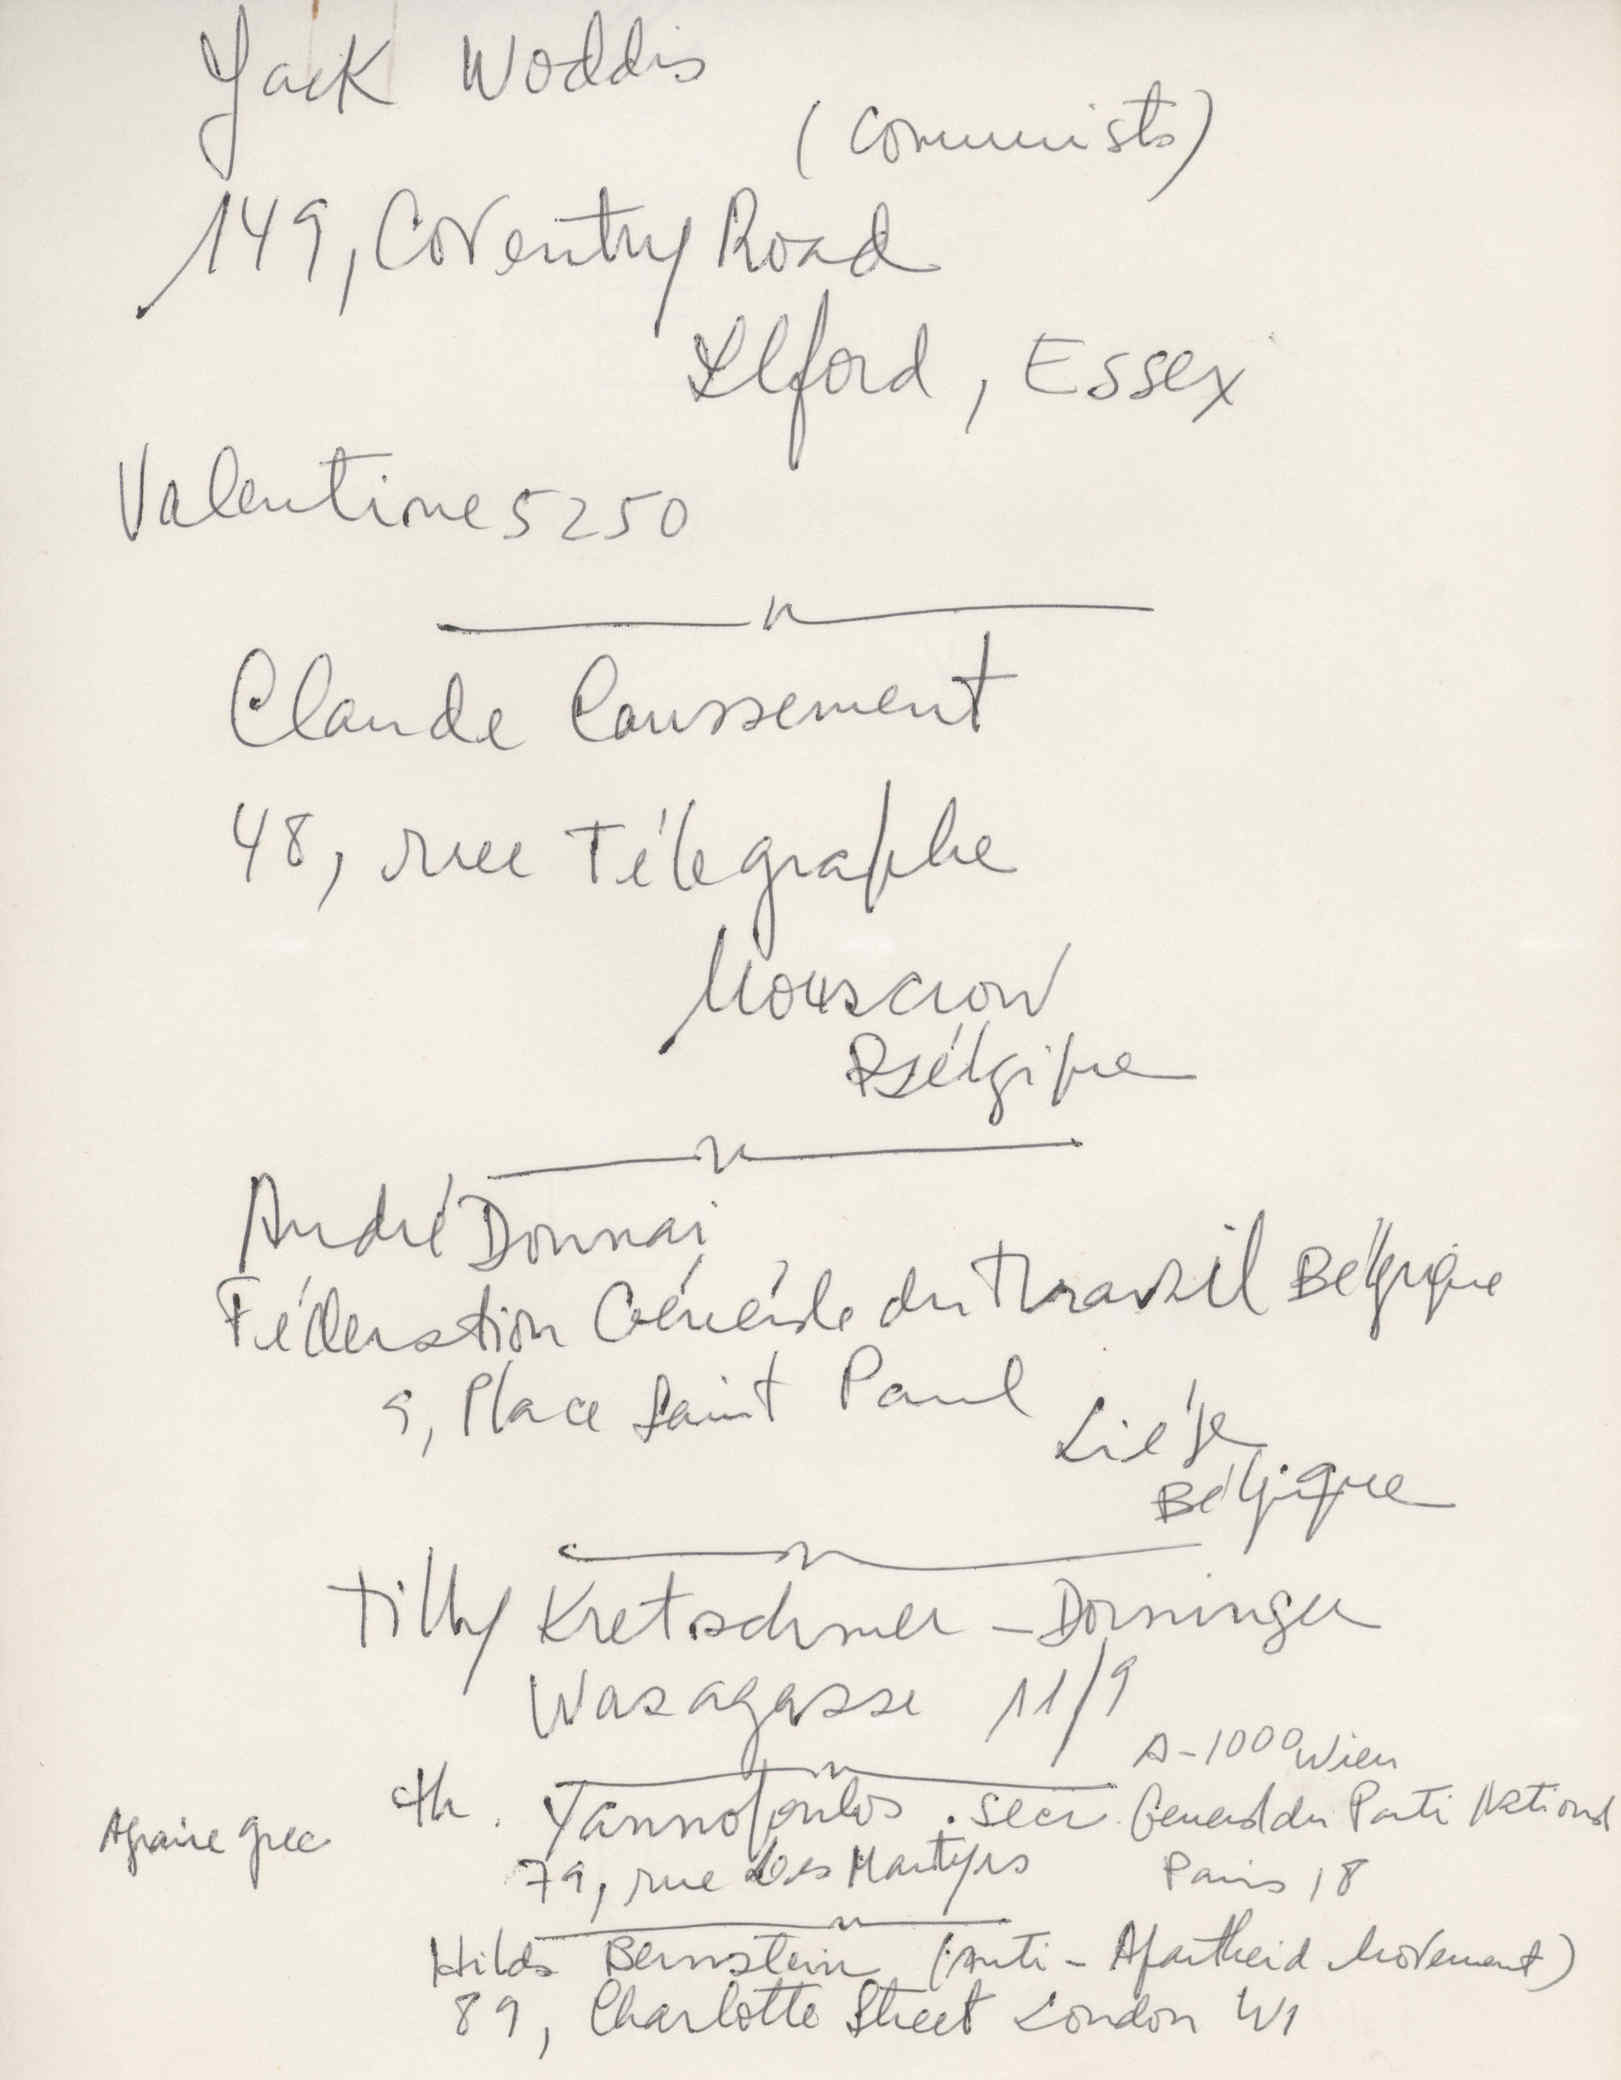 Jack Woddis
(Communists)
149, Coventry Road
Ilford, Essex
Valentine 5250
Claude Coussement
48, rue Télégraphe
Mouscron
Bélgique
André Donnai
Fédération Générale du Travail Bélgique
9, Place Saint Paul
Liége
Bélgique
Tilly Kretschmer - Dorninger
Wasagasse 11/9
A-1000 Wien
th. Yannopoulos . Secr General du Parti National
Agraire grec
79, rue des Martyrs Paris 18
Hilda Bernstein (Anti - Apartheid Movement)
89, Charlotte Street London W1